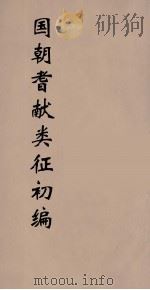 国朝耆献类征初编
mtoou.info